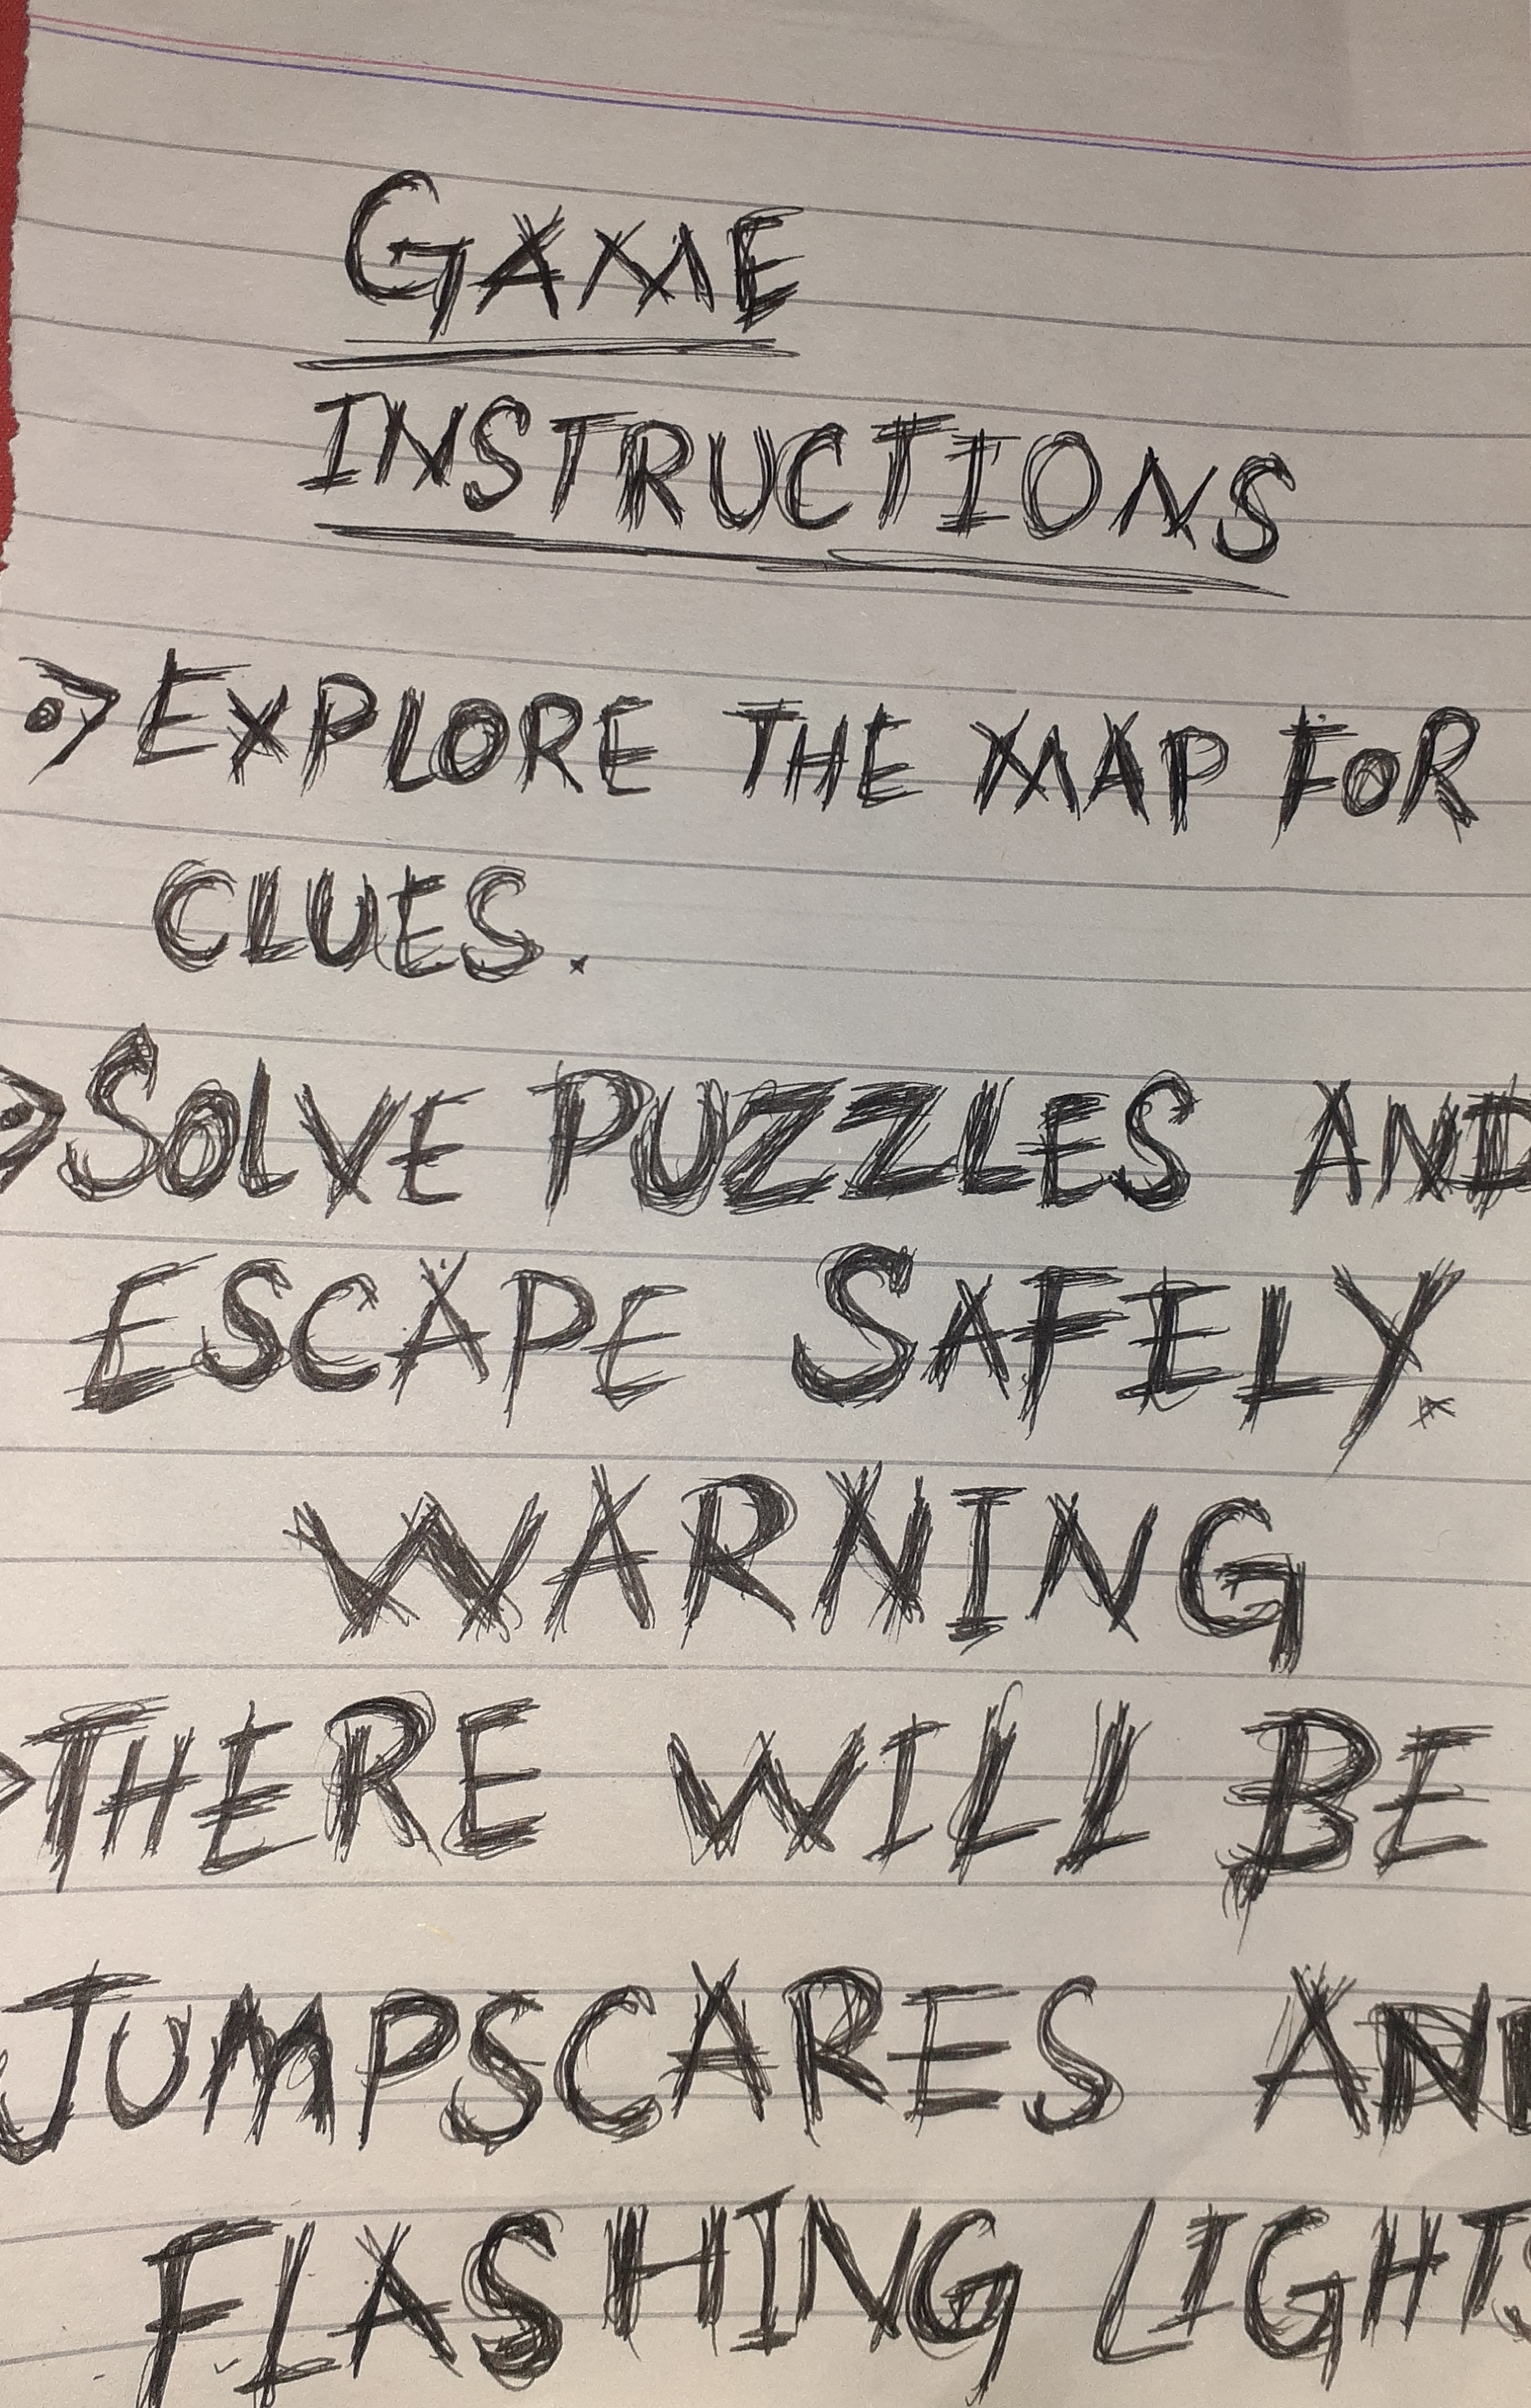 GAME
INSTRUCTIONS
EXPLORE THE MAP FOR
CLUES.
SOLVE PUZZLES AND
ESCAPE SAFELY.
WARNING
THERE WILL BE
JUMPSCARES AND
FLASHING LIGHTS